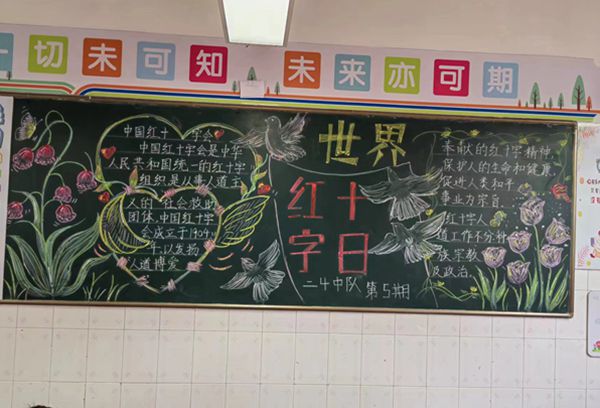 一切未可知
未来亦可期
中国红十字会
中国红十字会是中华
人民共和国统一的红十字
组织是从事人道主
人的社会救助
团体,中国红十字
会成立于1904
年以发扬
人道博爱
世界
红十
字日
二4中队 第5期
奉献的红十字精神,
保护人的生命和健康
促进人类和平
事业为宗旨
红十字人
道工作不分种
族宗教
及政治。